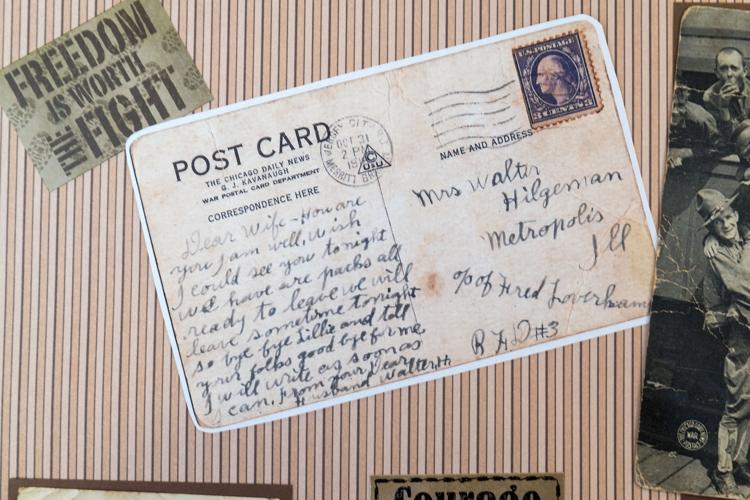 FREEDOM
IS WORTH
THE
FIGHT
POST CARD
THE CHICAGO DAILY NEWS
G. J. KAVANAUGH
WAR POSTAL CARD DEPARTMENT
CORRESPONDENCE HERE
Dear Wife - How are
you I am well, wish
I could see you tonight
we have are packs all
ready to leave we will
leave sometime tonight
so bye bye Lillie and tell
your folks good bye for me
I will write as soon as
I can. From your Dear
Husband Walter H.
JERSEY CITY N.J.
OCT 31
2 P
MERRITT BR
U.S. POSTAGE
3 CENTS 3
NAME AND ADDRESS
Mrs Walter
Hilgeman
Metropolis
Ill
c/o of Fred Loverkamp
R F D #3
WAR
Courage